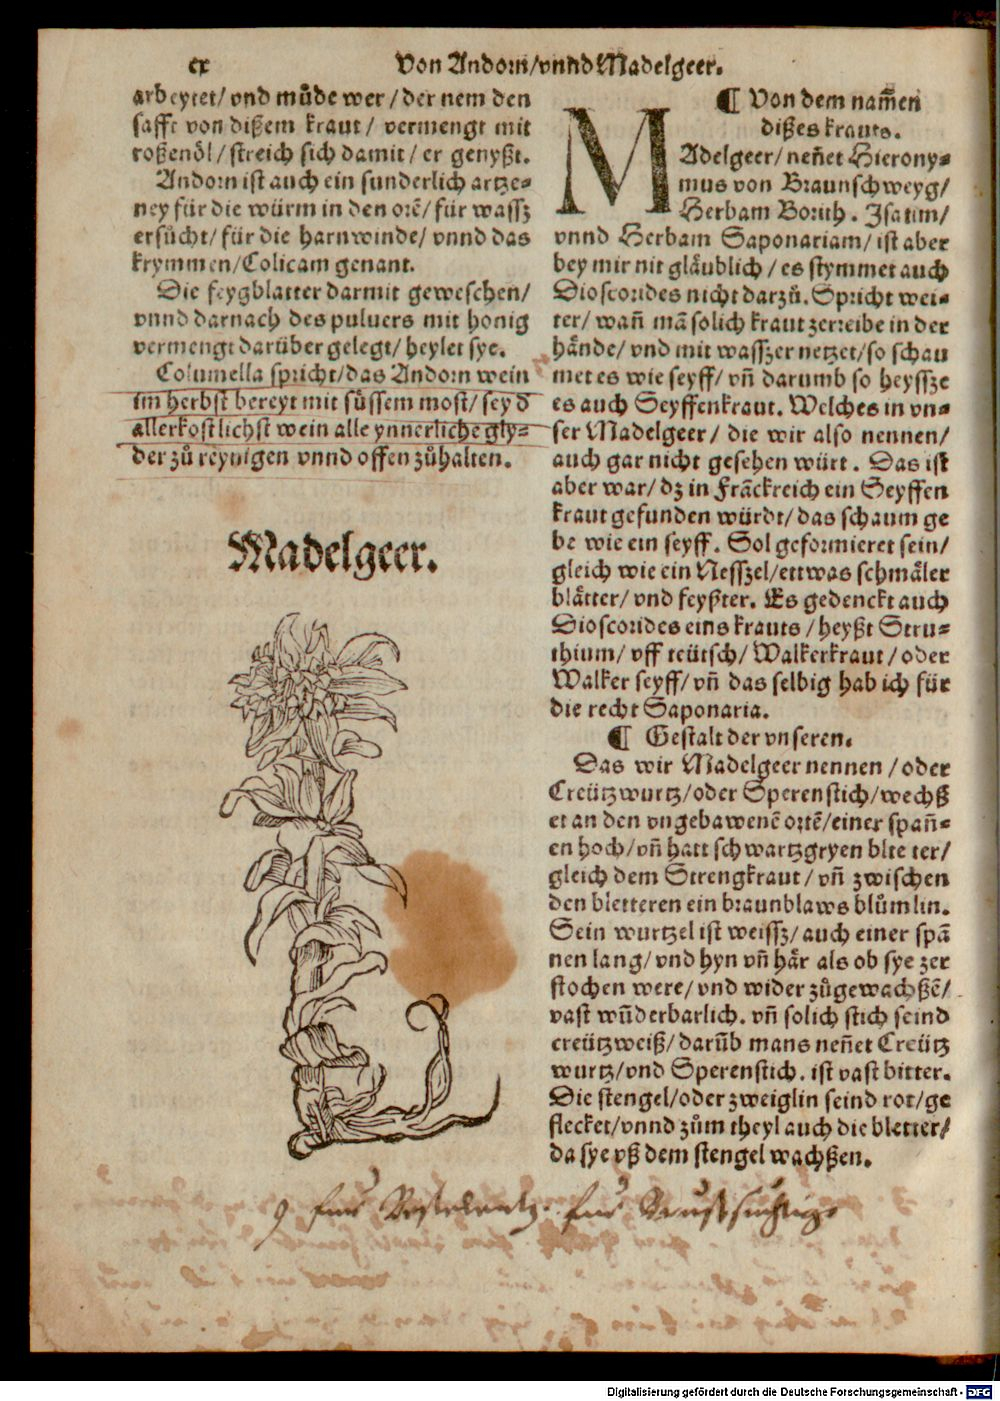 cx
Von Andorn/vnnd Madelgeer.
arbeytet/vnd můde wer/der nem den
safft von dißem kraut/ vermengt mit
roßenöl/streich sich damit/er genyßt.
Andorn ist auch ein sunderlich artze-
ney für die würm in den orẽ/für wassz
ersücht/für die harnwinde/vnnd das
krymmen/Colicam genant.
Die feygblatter darmit geweschen/
vnnd darnach des puluers mit honig
vermengt darüber gelegt/heylet sye.
Columella spricht/das Andorn wein
im herbst bereyt mit süssem most/sey d
allerkostlichst wein alle ynnerliche gly-
der zů reynigen vnnd offen zůhalten.
Madelgeer.
¶ Von dem nam̃en
dißes krauts.
MAdelgeer/neñet Hierony-
mus von Braunschweyg/
Herbam Borith. Isatim/
vnnd Herbam Saponariam/ist aber
bey mir nit gläublich/es stymmet auch
Dioscorides nicht darzů. Spricht wei-
ter/wañ mã solich kraut zerreibe in der
hände/vnd mit wasszer netzet/so schau
met es wie seyff/vñ darumb so heyssze
es auch Seyffenkraut. Welches in vn-
ser Madelgeer/ die wir also nennen/
auch gar nicht gesehen würt. Das ist
aber war/dz in Frãckreich ein Seyffen
kraut gefunden würdt/das schaum ge
be wie ein seyff. Sol geformieret sein/
gleich wie ein Nesszel/ettwas schmäler
blätter/vnd feyßter. Es gedenckt auch
Dioscorides eins krauts/heyßt Stru-
thium/vff teütsch/Walkerkraut/oder
Walker seyff/vñ das selbig hab ich für
die recht Saponaria.
¶ Gestalt der vnseren.
Das wir Madelgeer nennen/oder
Creützwurtz/oder Sperenstich/wechß
et an den vngebawenẽ ortẽ/einer spañ-
en hoch/vñ hatt schwartzgryen blte ter/
gleich dem Strengkraut/vñ zwischen
den bletteren ein braunblaws blůmlin.
Sein wurtzel ist weissz/auch einer spã
nen lang/vnd hyn vñ här als ob sye zer
stochen were/vnd wider zůgewachßẽ/
vast wũderbarlich. vñ solich stich seind
creützweiß/darũb mans neñet Creütz
wurtz/vnd Sperenstich. ist vast bitter.
Die stengel/oder zweiglin seind rot/ge
flecket/vnnd zům theyl auch die bletter/
da sye vß dem stengel wachßen.
für Pestelentz. für
Digitalisierung gefördert durch die Deutsche Forschungsgemeinschaft - DFG